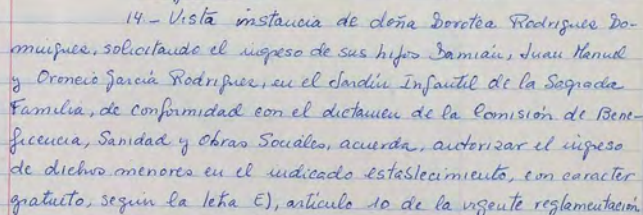 14.- Vista instancia de doña Dorotea Rodriguez Do-
minguez, solicitando el ingreso de sus hijos Damián, Juan Manuel
y Oroncio García Rodriguez, en el Jardín Infantil de la Sagrada
Familia, de conformidad con el dictamen de la Comisión de Bene-
ficencia, Sanidad y Obras Sociales, acuerda, autorizar el ingreso
de dichos menores en el indicado establecimiento, con caracter
gratuito, según la letra E), artículo 10 de la vigente reglamentación